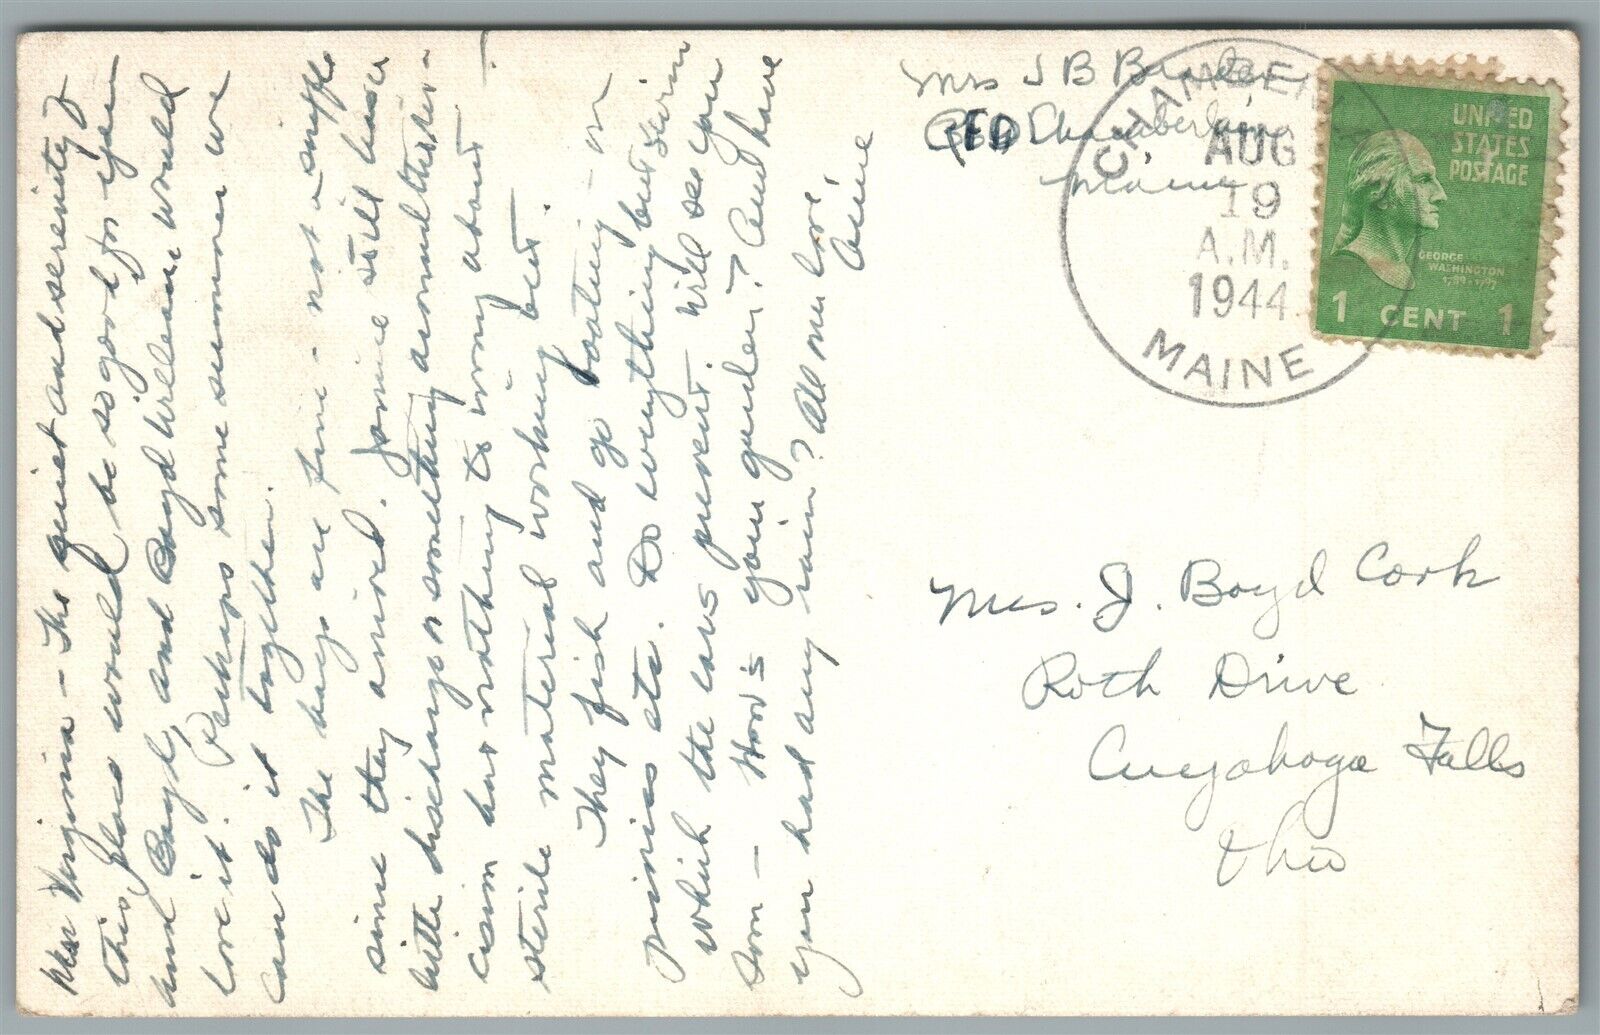 Dear Virginia - The quiet and serenity of
this place would be so good for you
and Boyd, and Boyd William would
love it. Perhaps some summer we
can do it together.
The boys are fine - not a sniffle
since they arrived. Jamie still has a
little discharge or something around the
cision but nothing to worry about -
sterile material working out.
They fish and go boating - on
picnics etc. Do everything but swim
which the ears prevent. Will see you
soon - How's your garden? And have
you had any rain? All our love,
Anne
Mrs J B
RFD Chamberlain
Maine
CHAMBERLAIN
AUG
19
A.M.
1944
MAINE
UNITED
STATES
POSTAGE
GEORGE
WASHINGTON
1789-1797
1 CENT 1
Mrs. J. Boyd Cook
Roth Drive
Cuyahoga Falls
Ohio